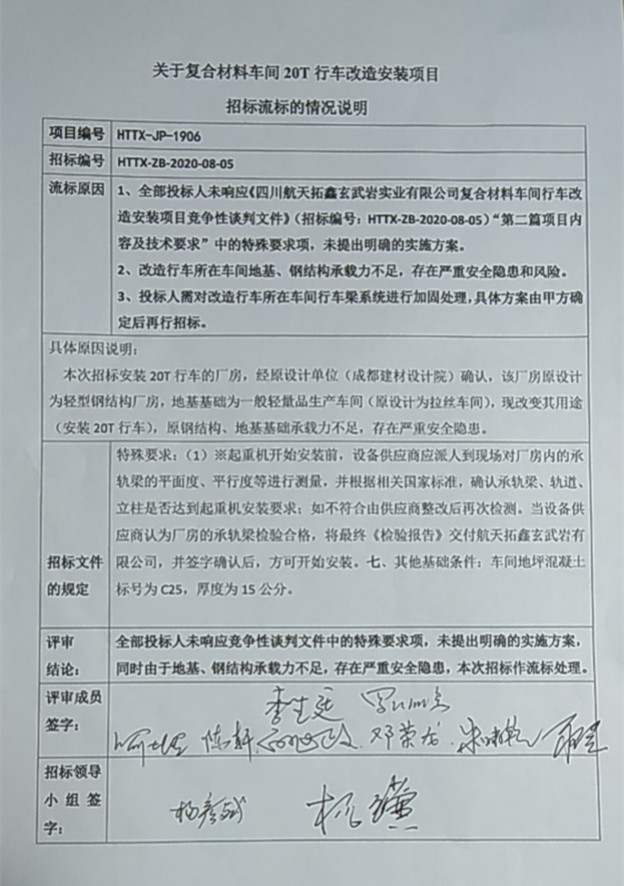 关于复合材料车间 20T 行车改造安装项目
招标流标的情况说明
项目编号 HTTX-JP-1906
招标编号 HTTX-ZB-2020-08-05
流标原因 1、全部投标人未响应《四川航天拓鑫玄武岩实业有限公司复合材料车间行车改
造安装项目竞争性谈判文件》（招标编号：HTTX-ZB-2020-08-05）“第二篇项目内
容及技术要求”中的特殊要求项，未提出明确的实施方案。
2、改造行车所在车间地基、钢结构承载力不足，存在严重安全隐患和风险。
3、投标人需对改造行车所在车间行车梁系统进行加固处理，具体方案由甲方确
定后再行招标。
具体原因说明：
本次招标安装 20T 行车的厂房，经原设计单位（成都建材设计院）确认，该厂房原设计
为轻型钢结构厂房，地基基础为一般轻量品生产车间（原设计为拉丝车间），现改变其用途
（安装 20T 行车），原钢结构、地基基础承载力不足，存在严重安全隐患。
招标文件
的规定
特殊要求：（1）※起重机开始安装前，设备供应商应派人到现场对厂房内的承
轨梁的平面度、平行度等进行测量，并根据相关国家标准，确认承轨梁、轨道、
立柱是否达到起重机安装要求；如不符合由供应商整改后再次检测。当设备供
应商认为厂房的承轨梁检验合格，将最终《检验报告》交付航天拓鑫玄武岩有
限公司，并签字确认后，方可开始安装。七、其他基础条件：车间地坪混凝土
标号为 C25，厚度为 15 公分。
评审
结论：
全部投标人未响应竞争性谈判文件中的特殊要求项，未提出明确的实施方案，
同时由于地基、钢结构承载力不足，存在严重安全隐患，本次招标作流标处理。
评审成员
签字：
李生廷
陈轩 邓荣龙
招标领导
小组签
字：
杨彦斌